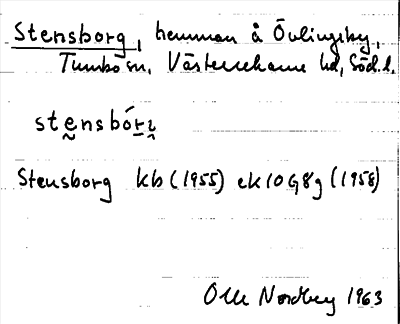 Stensborg, hemman å Övlingeby,
Tumbo sn, Västerrekarne hd, Södl.
stensbórj
Stensborg kb (1955) ek 10G8g (1958)
Olle Nordberg 1963